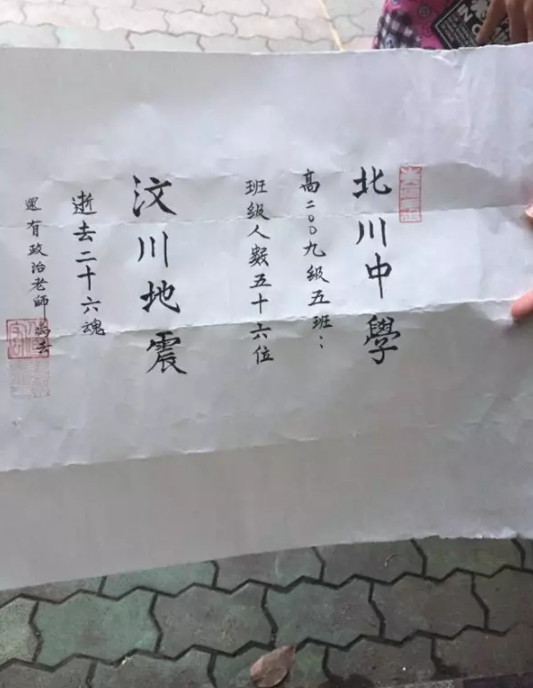 北川中學
高二〇〇九級五班：
班級人數五十六位
汶川地震
逝去二十六魂
還有政治老師